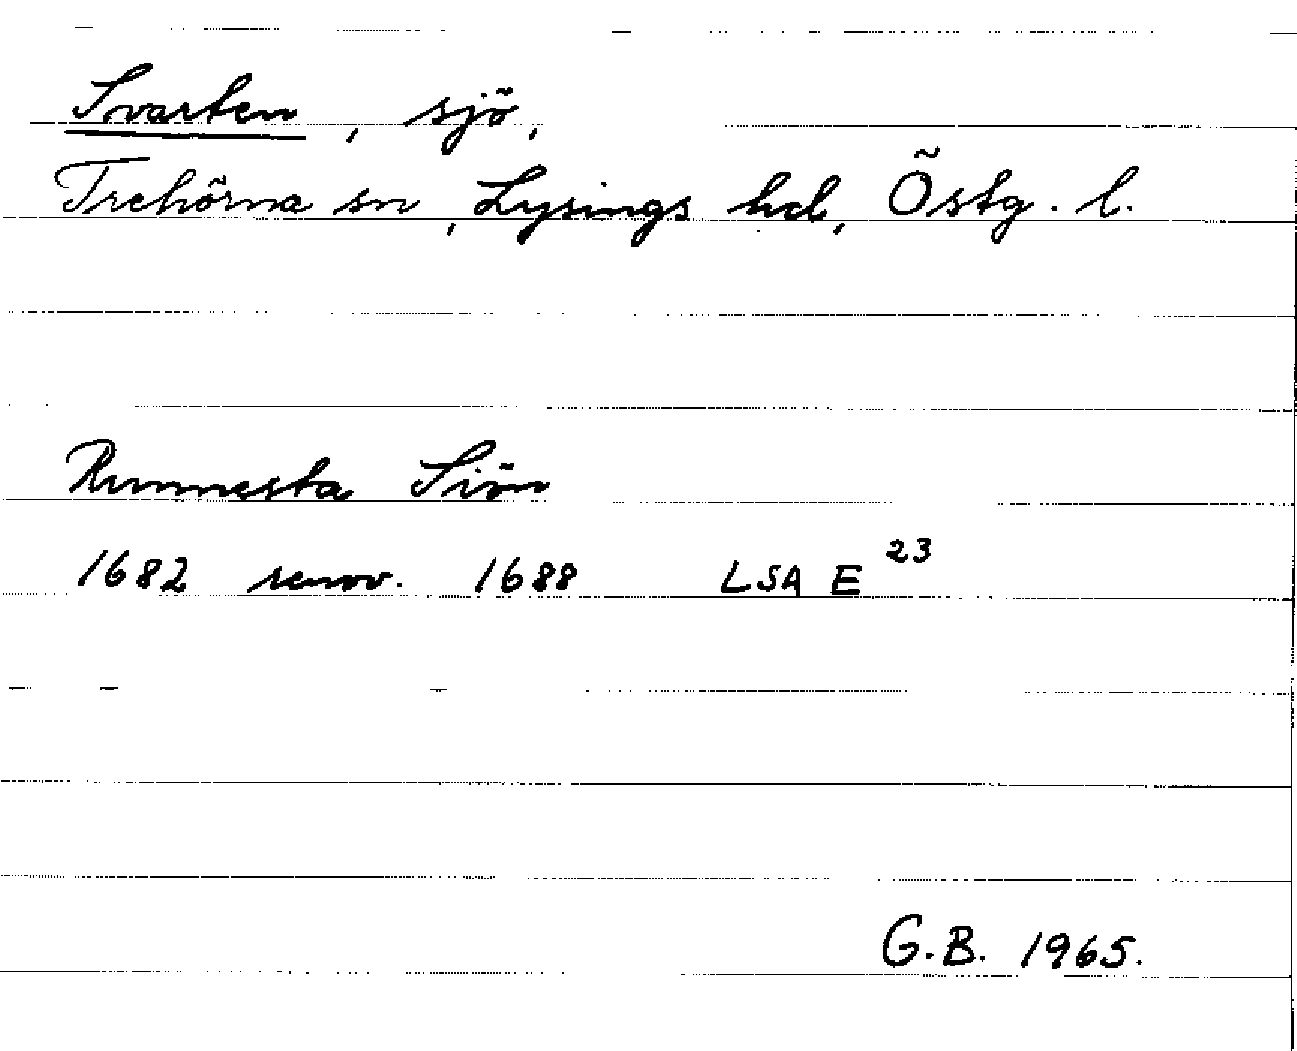 Svarten, sjö,
Trehörna sn, Lysings hd, Östg. l.
Runnesta Siön
1682 renov. 1688 LSA E 23
G.B. 1965.